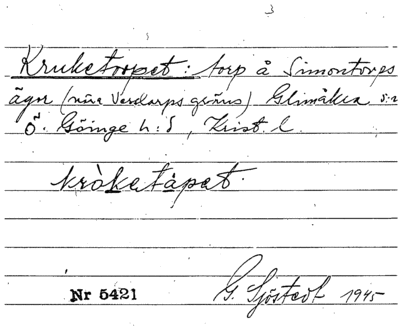 3
Kruketorpet: torp å Simontorps
ägor (nära Verdarps gräns) Glimåkra s:n
Ö. Göinge h:d, Krist. l.
kròketåpet.
Nr 5421 G. Sjöstedt 1945